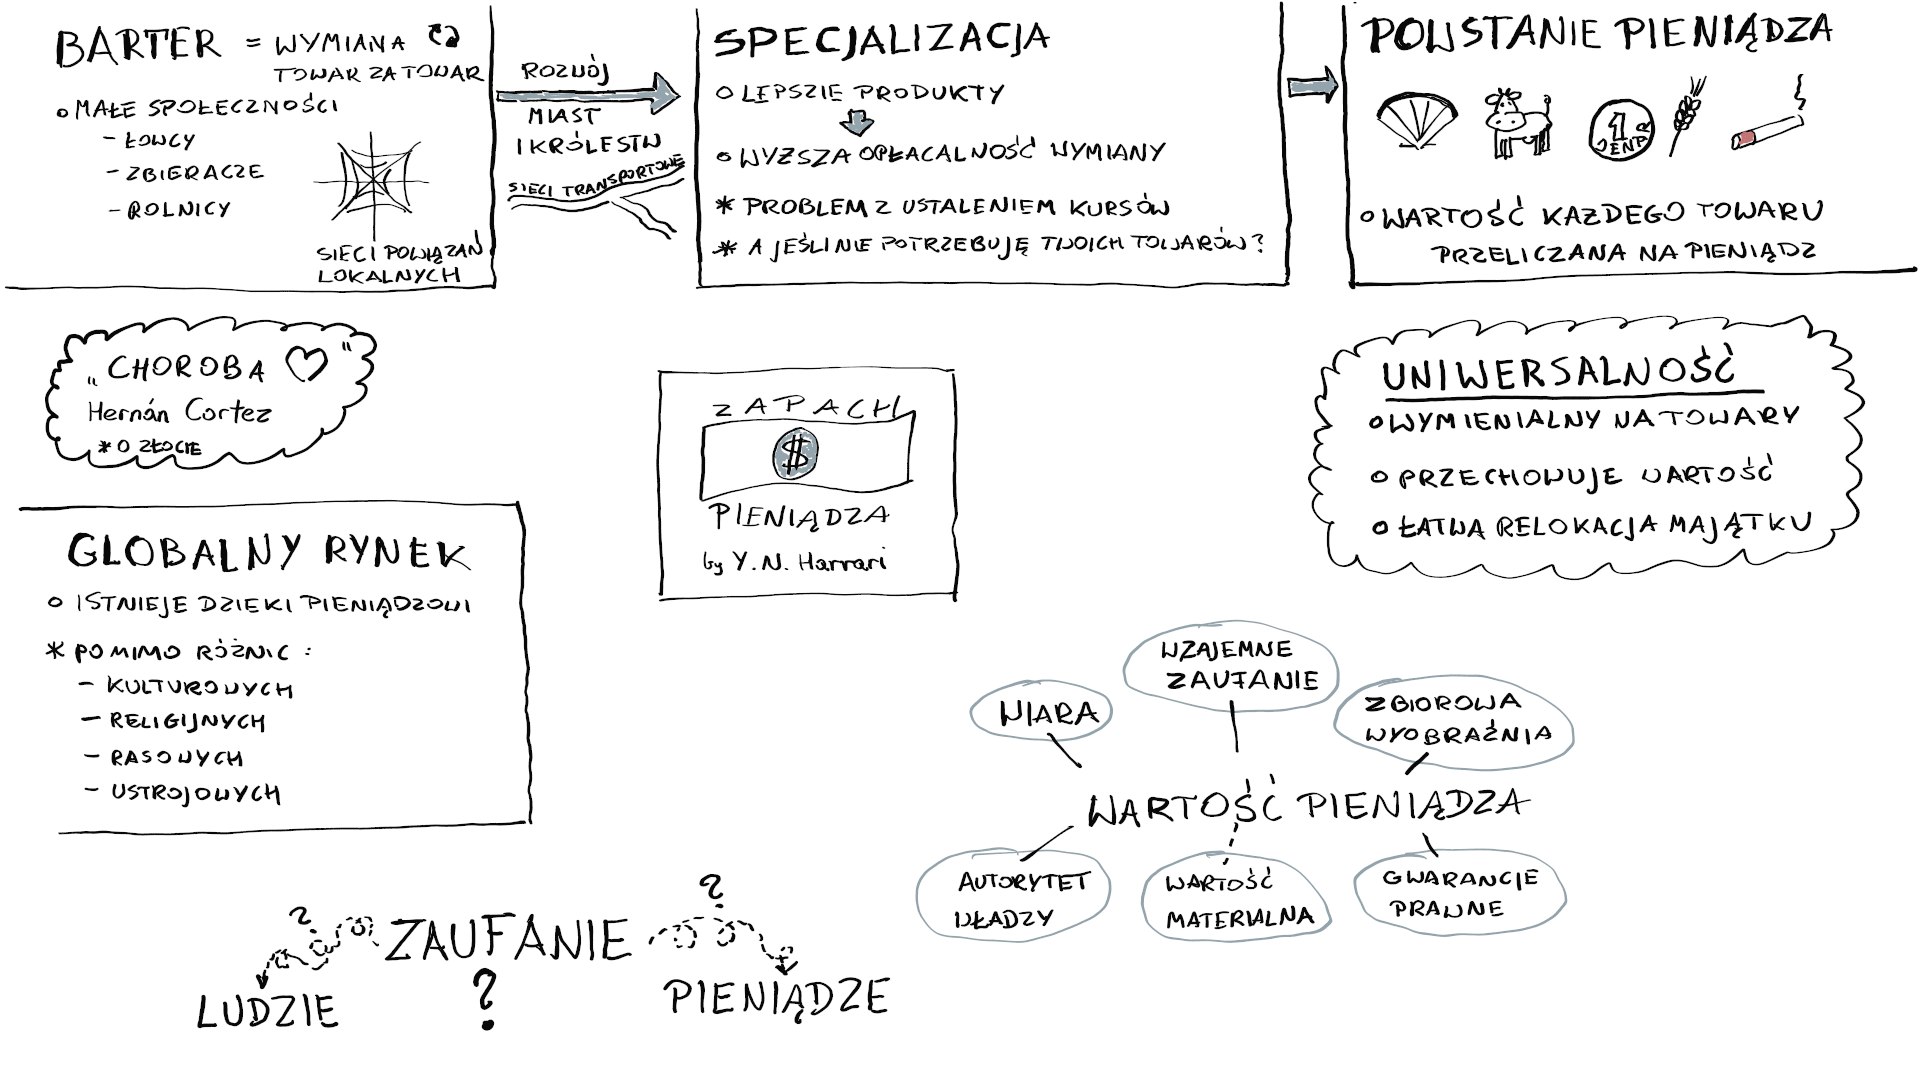 BARTER = WYMIANA
TOWAR ZA TOWAR
MAŁE SPOŁECZNOŚCI
- ŁOWCY
- ZBIERACZE
- ROLNICY
SIECI POWIĄZAŃ
LOKALNYCH
ROZWÓJ
MIAST
I KRÓLESTW
SIECI TRANSPORTOWE
SPECJALIZACJA
LEPSZE PRODUKTY
WYŻSZA OPŁACALNOŚĆ WYMIANY
* PROBLEM Z USTALENIEM KURSÓW
* A JEŚLI NIE POTRZEBUJĘ TWOICH TOWARÓW?
POWSTANIE PIENIĄDZA
1
DENAR
WARTOŚĆ KAŻDEGO TOWARU
PRZELICZANA NA PIENIĄDZ
„CHOROBA ♡"
Hernán Cortez
* O ZŁOCIE
ZAPACH
$
PIENIĄDZA
by Y.N. Harrari
UNIWERSALNOŚĆ
WYMIENIALNY NA TOWARY
PRZECHOWUJE WARTOŚĆ
ŁATWA RELOKACJA MAJĄTKU
GLOBALNY RYNEK
ISTNIEJE DZIEKI PIENIĄDZOWI
* POMIMO RÓŻNIC :
- KULTUROWYCH
- RELIGIJNYCH
- RASOWYCH
- USTROJOWYCH
WIARA
WZAJEMNE
ZAUFANIE
ZBIOROWA
WYOBRAŹNIA
WARTOŚĆ PIENIĄDZA
AUTORYTET
WŁADZY
WARTOŚĆ
MATERIALNA
GWARANCJE
PRAWNE
? ?
ZAUFANIE
?
LUDZIE
PIENIĄDZE